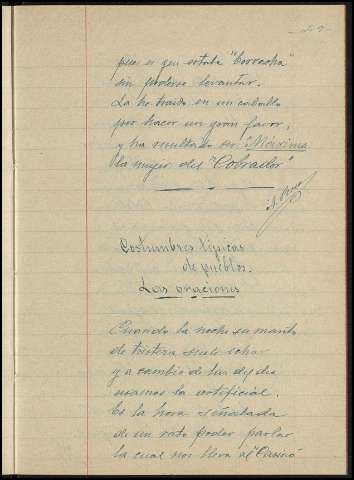 -29-
pues es que estaba "borracha"
sin poderse levantar.
La he traido en un caballo
por hacer un gran favor,
y ha resultado ser "Máxima"
la mujer del "Cobrador"
Costumbres típicas
de pueblos.
Las oraciones
Cuando la noche su manto
de tristeza suele echar
y a cambio de luz dejada
usamos la artificial.
Es la hora señalada
de un rato poder parlar
la cual nos lleva al "Casinó